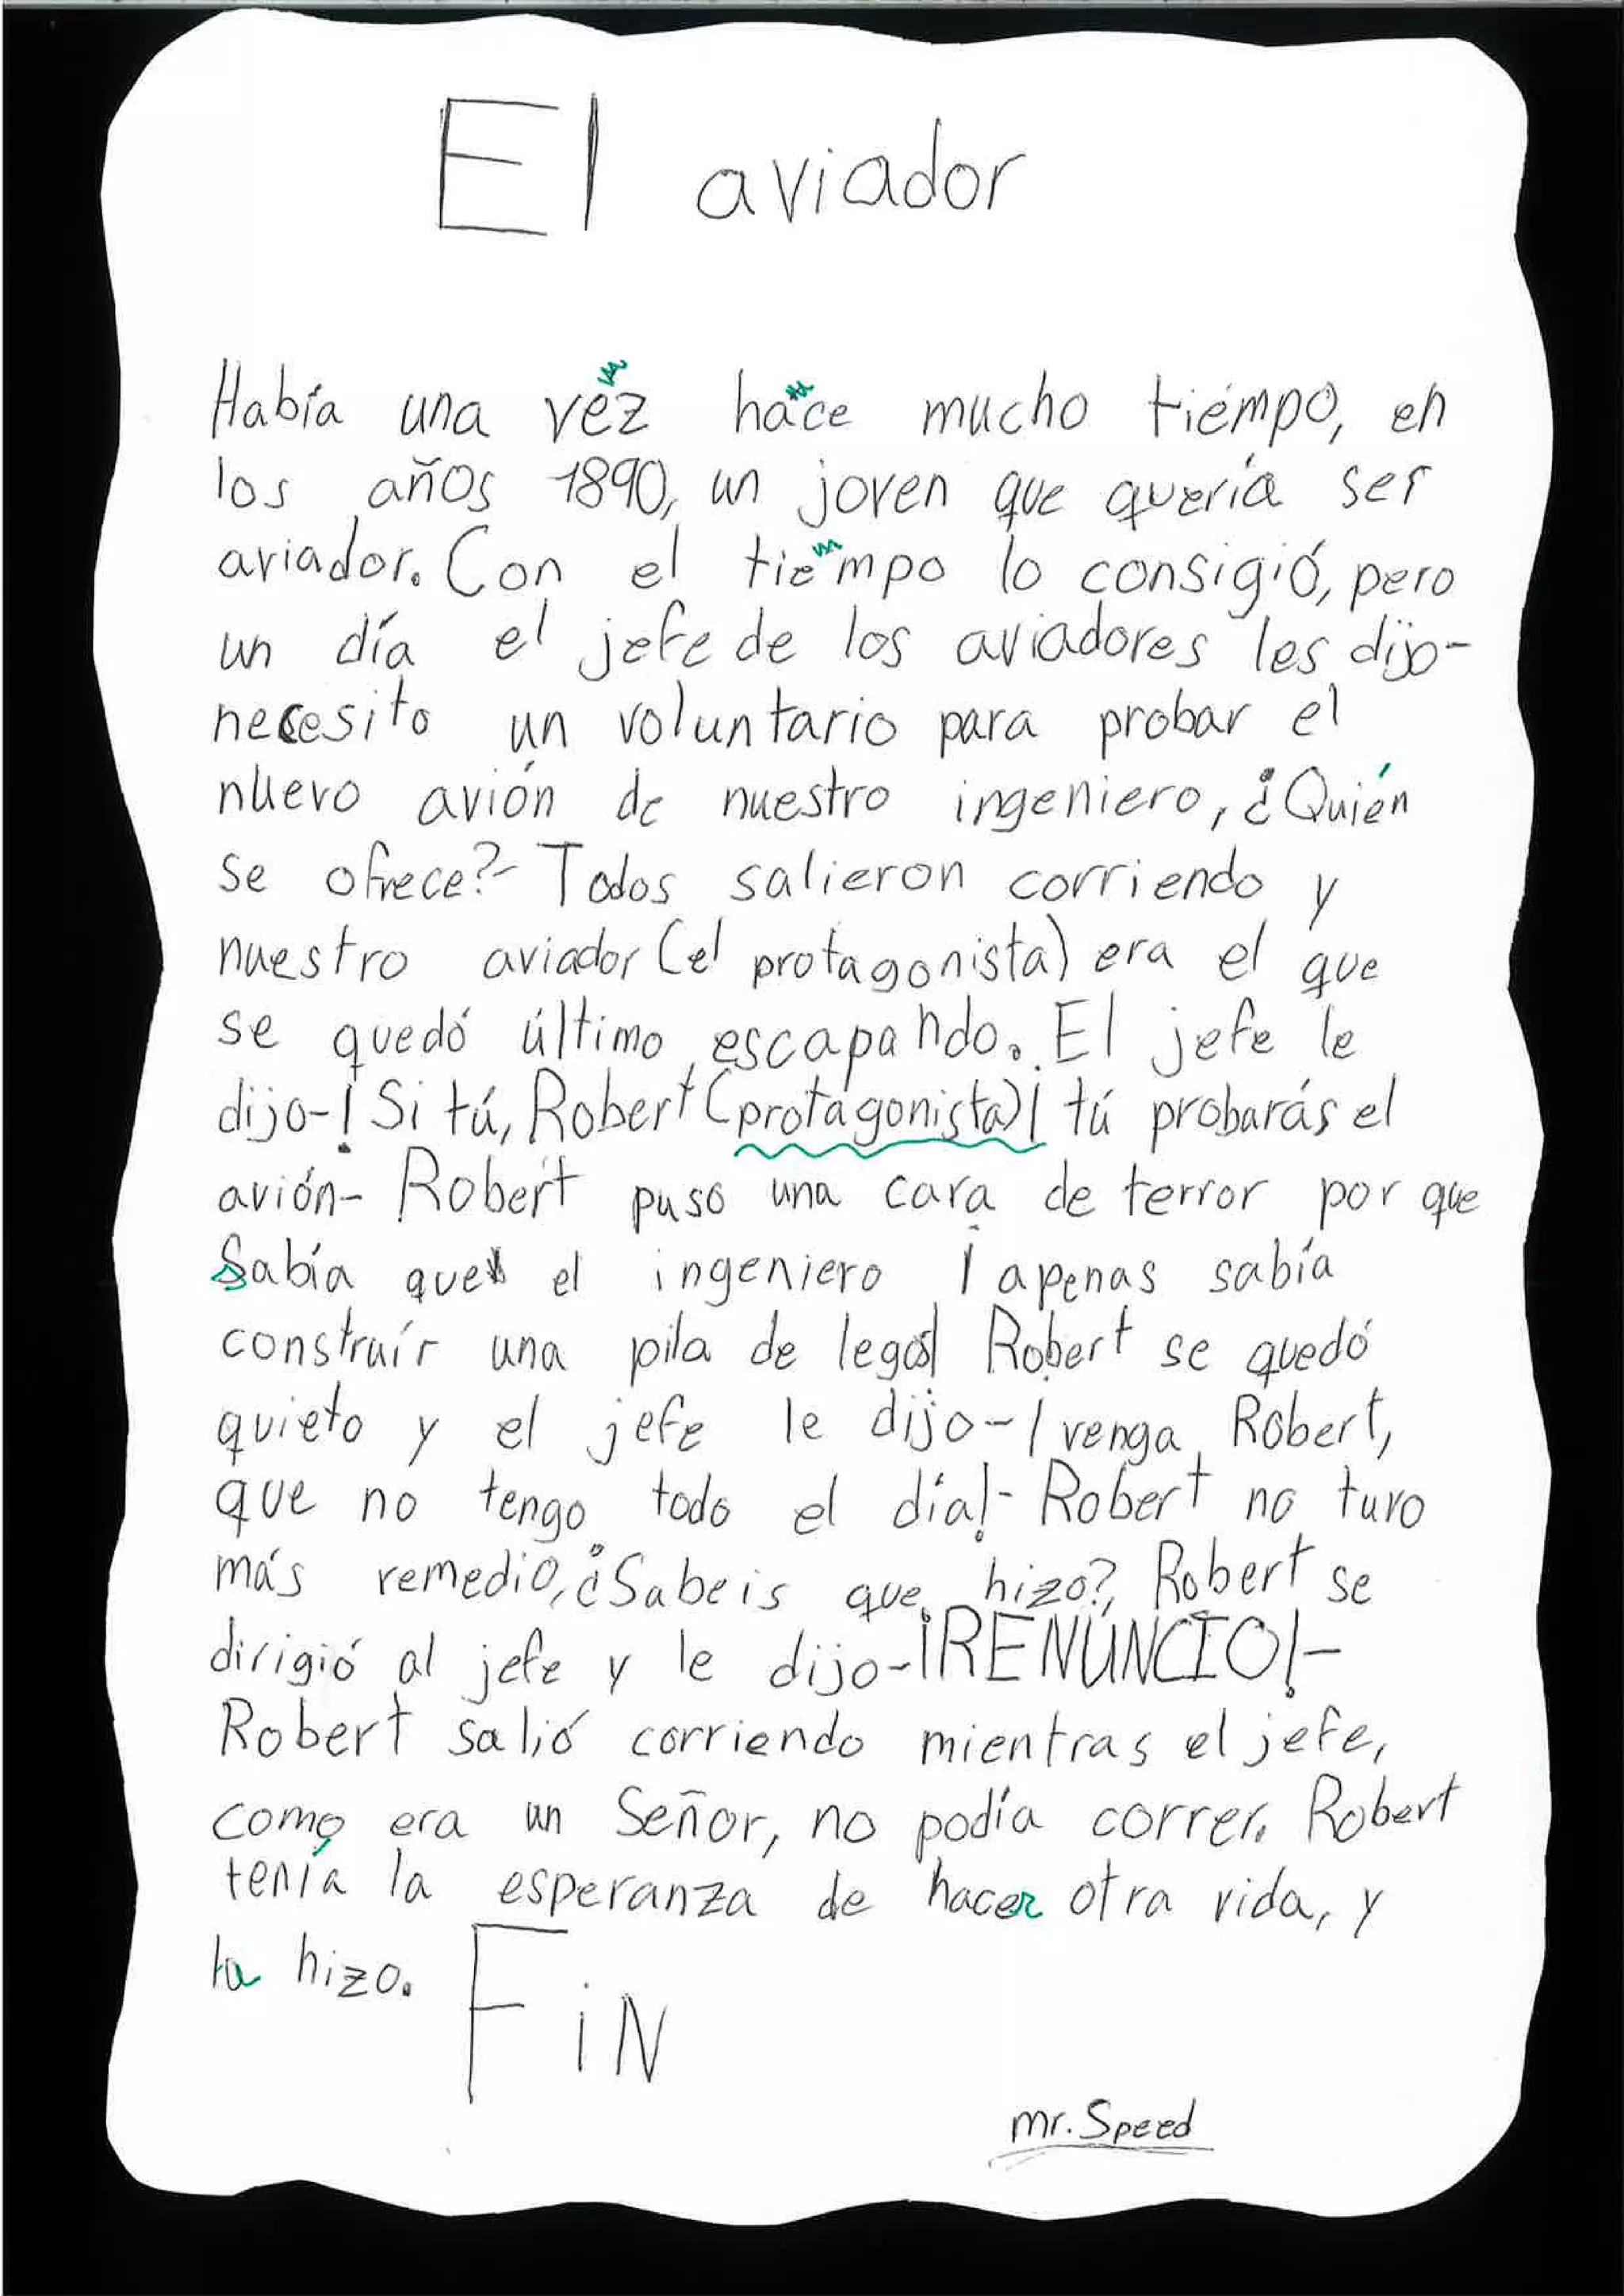 El aviador
Había una vez hace mucho tiémpo, en
los años 1890, un joven que quería ser
aviador. Con el tiempo lo consigió, pero
un día el jefe de los aviadores les dijo-
necesito un voluntario para probar el
nuevo avión de nuestro ingeniero, ¿Quién
se ofrece?- Todos salieron corriendo y
nuestro aviador (el protagonista) era el que
se quedó último escapando. El jefe le
dijo-! Si tú, Robert (protagonista)¡ tú probarás el
avión- Robert puso una cara de terror por que
sabía que el ingeniero ¡apenas sabía
construír una pila de legos! Robert se quedó
quieto y el jefe le dijo-¡venga Robert,
que no tengo todo el día!- Robert no tuvo
más remedio, ¿Sabeis que hizo?, Robert se
dirigió al jefe y le dijo-¡RENÚNCIO!-
Robert salió corriendo mientras el jefe,
como era un Señor, no podía correr. Robert
tenía la esperanza de hacer otra vida, y
la hizo. FiN
mr. Speed